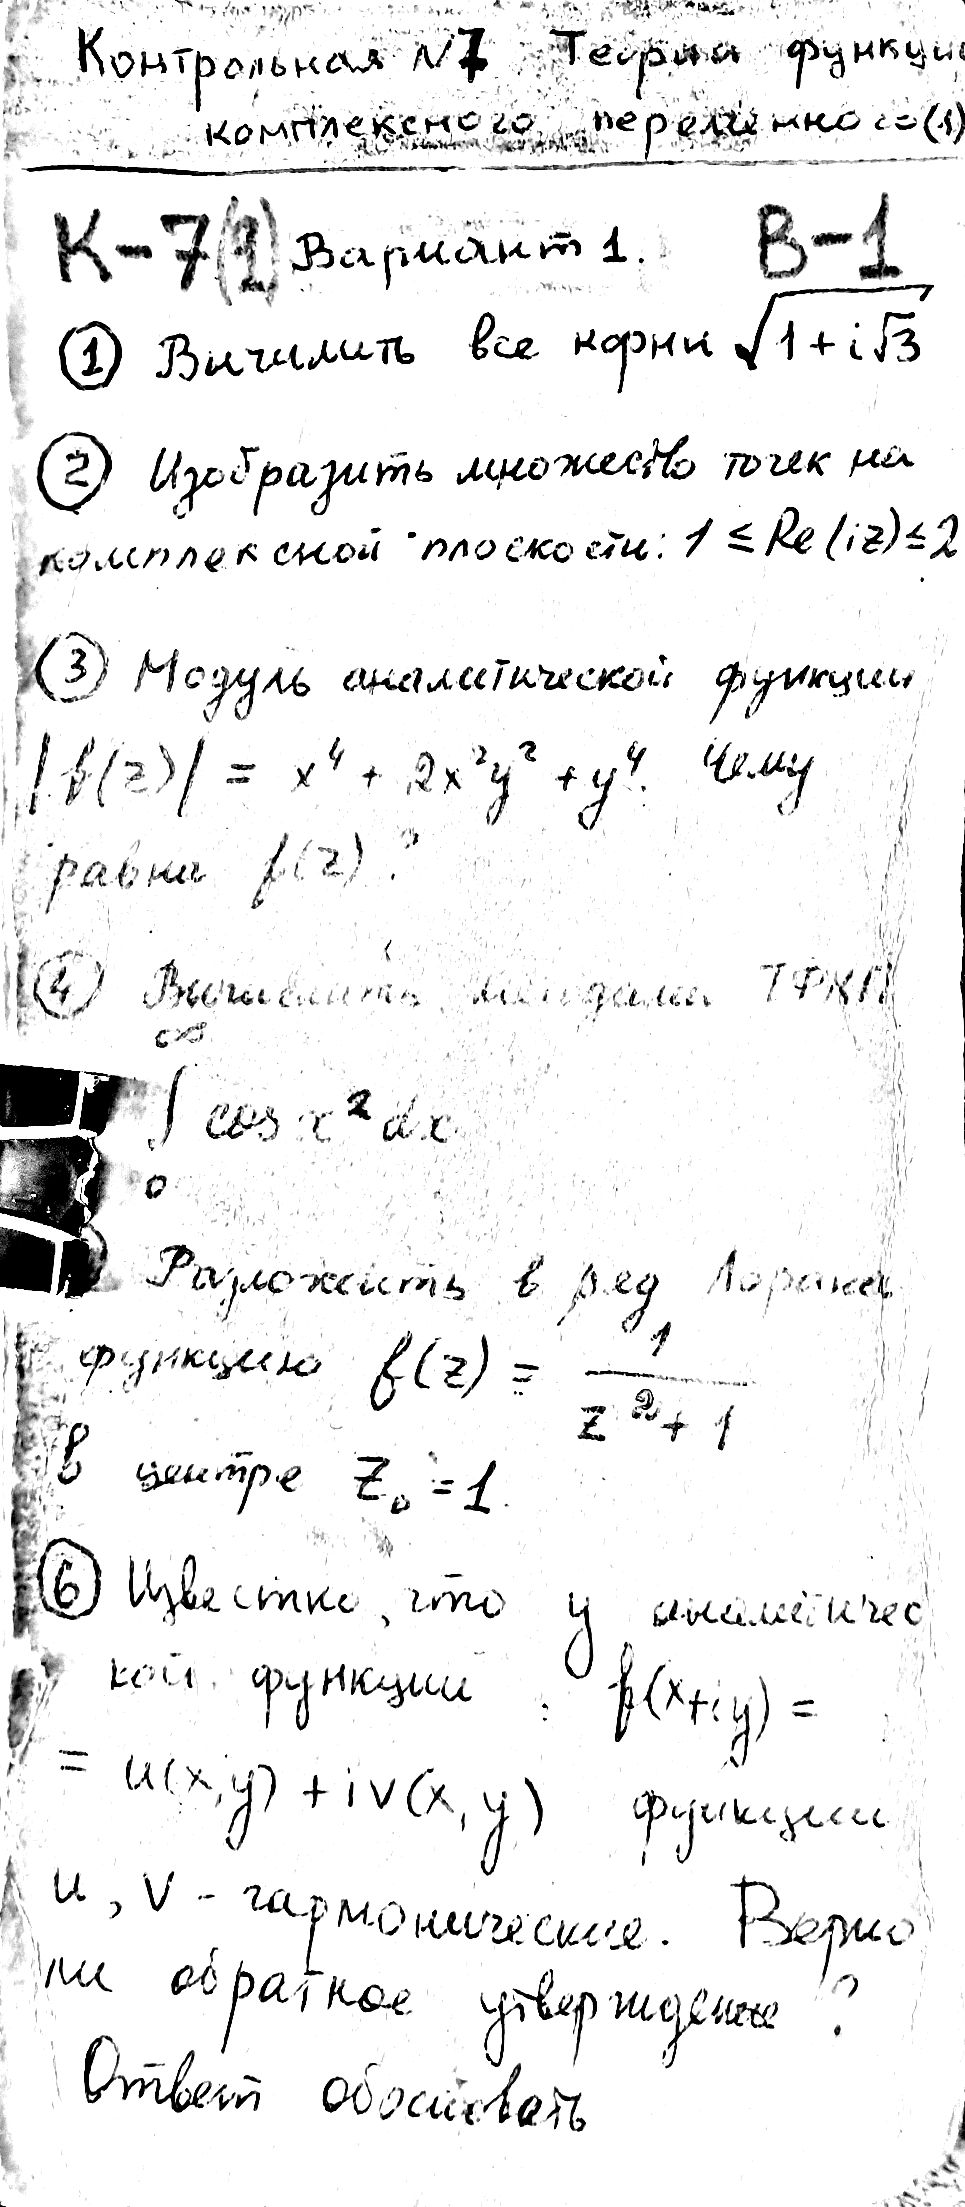 Контрольная №7 Теория функции
комплексного переменного(1)
К-7(1) Вариант 1. В-1
① Вычислить все корни √(1+i√3)
② Изобразить множество точек на
комплексной плоскости: 1 ≤ Re(iz) ≤ 2
③ Модуль аналитической функции
|f(z)| = x⁴ + 2x²y² + y⁴. Чему
равна f(z)?
④ Вычислить методами ТФКП
∞
∫ cos x² dx
0
Разложить в ряд Лорана
функцию f(z) = 1/(z²+1)
в центре z₀ = 1.
⑥ Известно, что у аналитичес
кой функции f(x+iy) =
= u(x,y) + iv(x,y) функции
u, v - гармонические. Верно
ли обратное утверждение?
Ответ обосновать